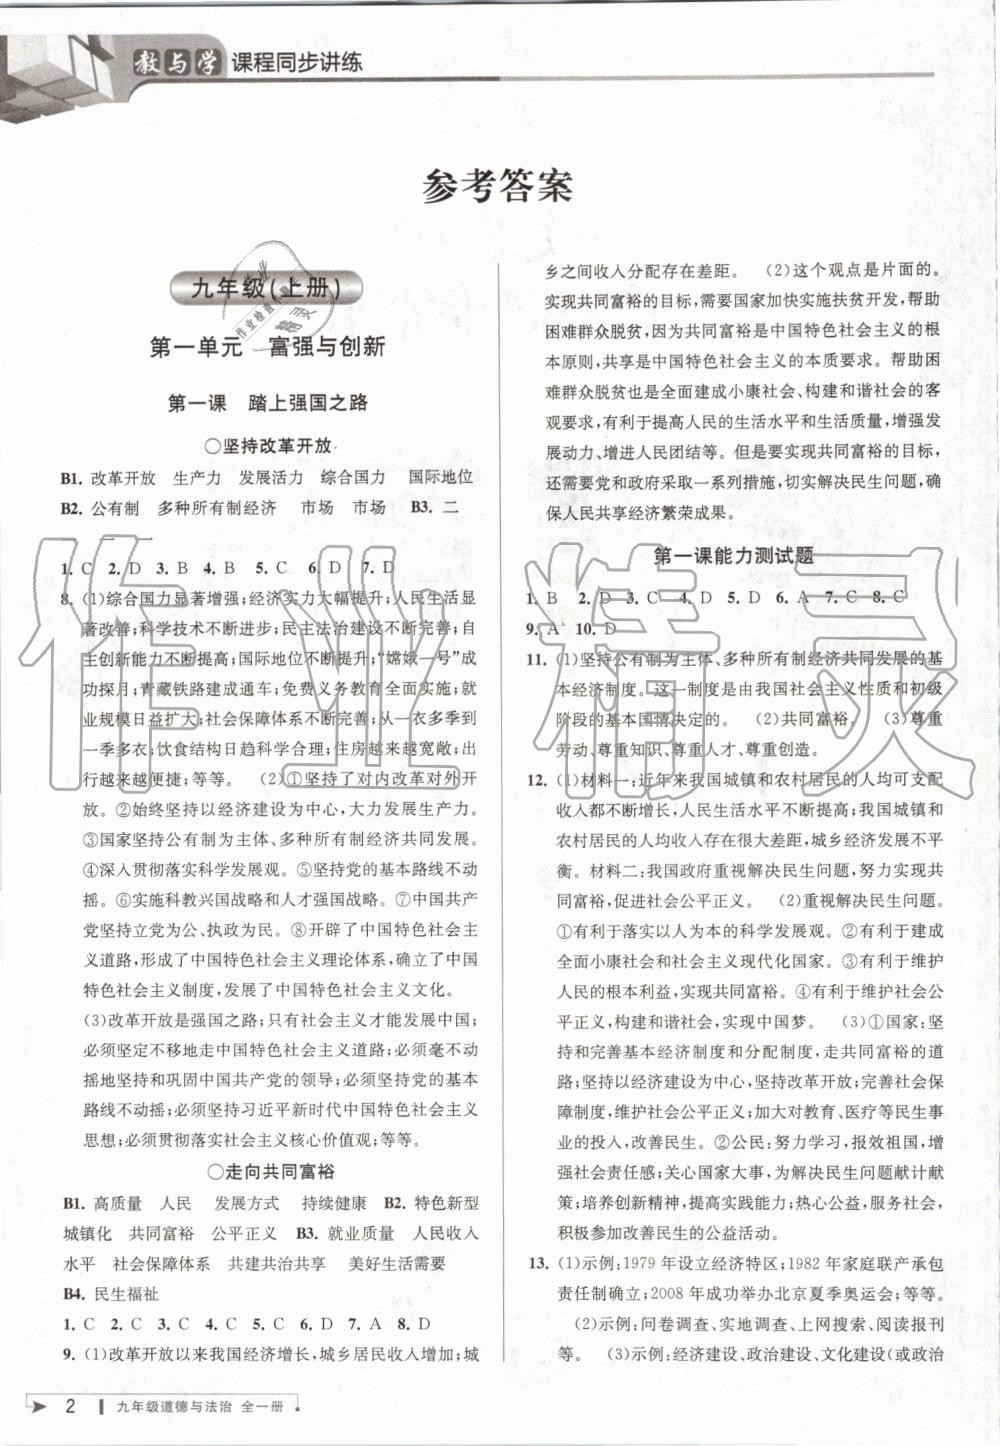 教与学 课程同步讲练
参考答案
九年级(上册)
第一单元 富强与创新
第一课 踏上强国之路
○坚持改革开放
B1. 改革开放 生产力 发展活力 综合国力 国际地位
B2. 公有制 多种所有制经济 市场 市场 B3. 二
1. C 2. D 3. B 4. B 5. C 6. D 7. D
8. (1)综合国力显著增强;经济实力大幅提升;人民生活显
著改善;科学技术不断进步;民主法治建设不断完善;自
主创新能力不断提高;国际地位不断提升;“嫦娥一号”成
功探月;青藏铁路建成通车;免费义务教育全面实施;就
业规模日益扩大;社会保障体系不断完善;从一衣多季到
一季多衣;饮食结构日趋科学合理;住房越来越宽敞;出
行越来越便捷;等等。 (2)①坚持了对内改革对外开
放。②始终坚持以经济建设为中心,大力发展生产力。
③国家坚持公有制为主体、多种所有制经济共同发展。
④深入贯彻落实科学发展观。⑤坚持党的基本路线不动
摇。⑥实施科教兴国战略和人才强国战略。⑦中国共产
党坚持立党为公、执政为民。⑧开辟了中国特色社会主
义道路,形成了中国特色社会主义理论体系,确立了中国
特色社会主义制度,发展了中国特色社会主义文化。
(3)改革开放是强国之路;只有社会主义才能发展中国;
必须坚定不移地走中国特色社会主义道路;必须毫不动
摇地坚持和巩固中国共产党的领导;必须坚持党的基本
路线不动摇;必须坚持习近平新时代中国特色社会主义
思想;必须贯彻落实社会主义核心价值观;等等。
○走向共同富裕
B1. 高质量 人民 发展方式 持续健康 B2. 特色新型
城镇化 共同富裕 公平正义 B3. 就业质量 人民收入
水平 社会保障体系 共建共治共享 美好生活需要
B4. 民生福祉
1. C 2. C 3. C 4. C 5. C 6. D 7. A 8. D
9. (1)改革开放以来我国经济增长,城乡居民收入增加;城
乡之间收入分配存在差距。 (2)这个观点是片面的。
实现共同富裕的目标,需要国家加快实施扶贫开发,帮助
困难群众脱贫,因为共同富裕是中国特色社会主义的根
本原则,共享是中国特色社会主义的本质要求。帮助困
难群众脱贫也是全面建成小康社会、构建和谐社会的客
观要求,有利于提高人民的生活水平和生活质量,增强发
展动力,增进人民团结等。但是要实现共同富裕的目标,
还需要党和政府采取一系列措施,切实解决民生问题,确
保人民共享经济繁荣成果。
第一课能力测试题
1. B 2. D 3. C 4. D 5. D 6. A 7. C 8. C
9. A 10. D
11. (1)坚持公有制为主体、多种所有制经济共同发展的基
本经济制度。这一制度是由我国社会主义性质和初级
阶段的基本国情决定的。 (2)共同富裕。 (3)尊重
劳动、尊重知识、尊重人才、尊重创造。
12. (1)材料一:近年来我国城镇和农村居民的人均可支配
收入都不断增长,人民生活水平不断提高;我国城镇和
农村居民的人均收入存在很大差距,城乡经济发展不平
衡。材料二:我国政府重视解决民生问题,努力实现共
同富裕,促进社会公平正义。 (2)重视解决民生问题。
①有利于落实以人为本的科学发展观。②有利于建成
全面小康社会和社会主义现代化国家。③有利于维护
人民的根本利益,实现共同富裕。④有利于维护社会公
平正义,构建和谐社会,实现中国梦。 (3)①国家:坚
持和完善基本经济制度和分配制度,走共同富裕的道
路;坚持以经济建设为中心,坚持改革开放;完善社会保
障制度,维护社会公平正义;加大对教育、医疗等民生事
业的投入,改善民生。②公民:努力学习,报效祖国,增
强社会责任感;关心国家大事,为解决民生问题献计献
策;培养创新精神,提高实践能力;热心公益,服务社会,
积极参加改善民生的公益活动。
13. (1)示例:1979年设立经济特区;1982年家庭联产承包
责任制确立;2008年成功举办北京夏季奥运会;等等。
(2)示例:问卷调查、实地调查、上网搜索、阅读报刊
等。 (3)示例:经济建设、政治建设、文化建设(或政治
2 九年级道德与法治 全一册
作业精灵